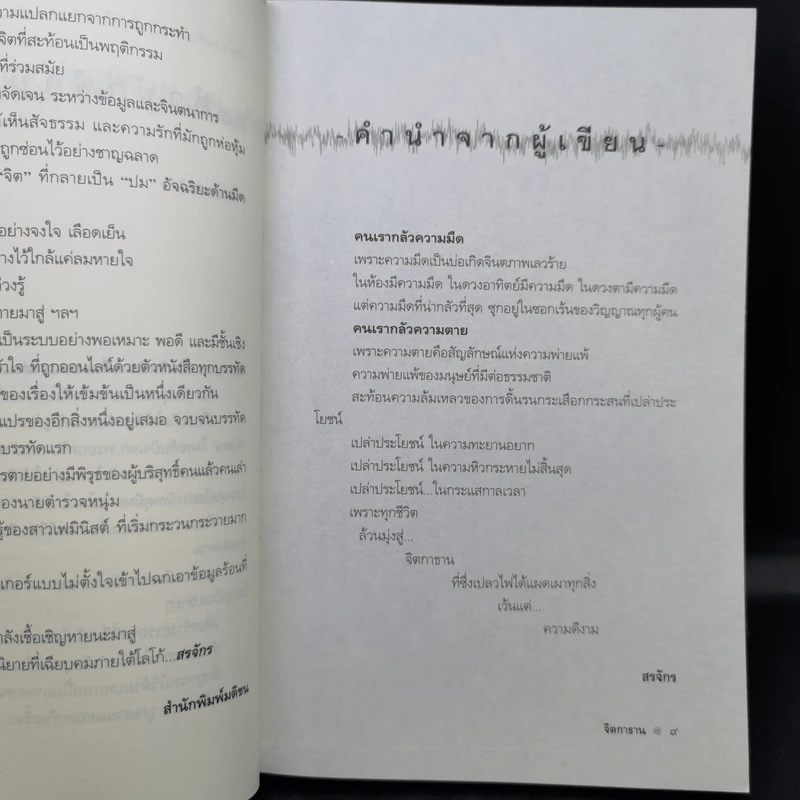 วามแปลกแยกจากการถูกกระทำ
จิตที่สะท้อนเป็นพฤติกรรม
ที่ร่วมสมัย
จัดเจน ระหว่างข้อมูลและจินตนาการ
ห้เห็นสัจธรรม และความรักที่มักถูกห่อหุ้ม
ถูกซ่อนไว้อย่างชาญฉลาด
“จิต” ที่กลายเป็น “ปม” อัจฉริยะด้านมืด
อย่างจงใจ เลือดเย็น
างไว้ใกล้แค่ลมหายใจ
่วงรู้
ายมาสู่ ฯลฯ
เป็นระบบอย่างพอเหมาะ พอดี และมีชั้นเชิง
ร้าใจ ที่ถูกออนไลน์ด้วยตัวหนังสือทุกบรรทัด
ของเรื่องให้เข้มข้นเป็นหนึ่งเดียวกัน
แปรของอีกสิ่งหนึ่งอยู่เสมอ จวบจนบรรทัด
บรรทัดแรก
รตายอย่างมีพิรุธของผู้บริสุทธิ์คนแล้วคนเล่า
องนายตำรวจหนุ่ม
รู้ของสาวเฟมินิสต์ ที่เริ่มกระวนกระวายมาก
เกอร์แบบไม่ตั้งใจเข้าไปฉกเอาข้อมูลร้อนที่
าลังเชื้อเชิญหายนะมาสู่
นิยายที่เฉียบคมภายใต้โลโก้...สรจักร
สำนักพิมพ์มติชน
- คำนำจากผู้เขียน -
คนเรากลัวความมืด
เพราะความมืดเป็นบ่อเกิดจินตภาพเลวร้าย
ในห้องมีความมืด ในดวงอาทิตย์มีความมืด ในดวงตามีความมืด
แต่ความมืดที่น่ากลัวที่สุด ซุกอยู่ในซอกเร้นของวิญญาณทุกผู้คน
คนเรากลัวความตาย
เพราะความตายคือสัญลักษณ์แห่งความพ่ายแพ้
ความพ่ายแพ้ของมนุษย์ที่มีต่อธรรมชาติ
สะท้อนความล้มเหลวของการดิ้นรนกระเสือกกระสนที่เปล่าประ
โยชน์
เปล่าประโยชน์ ในความทะยานอยาก
เปล่าประโยชน์ ในความหิวกระหายไม่สิ้นสุด
เปล่าประโยชน์...ในกระแสกาลเวลา
เพราะทุกชีวิต
ล้วนมุ่งสู่...
จิตกาธาน
ที่ซึ่งเปลวไฟได้แผดเผาทุกสิ่ง
เว้นแต่...
ความดีงาม
สรจักร
จิตกาธาน @ ๙